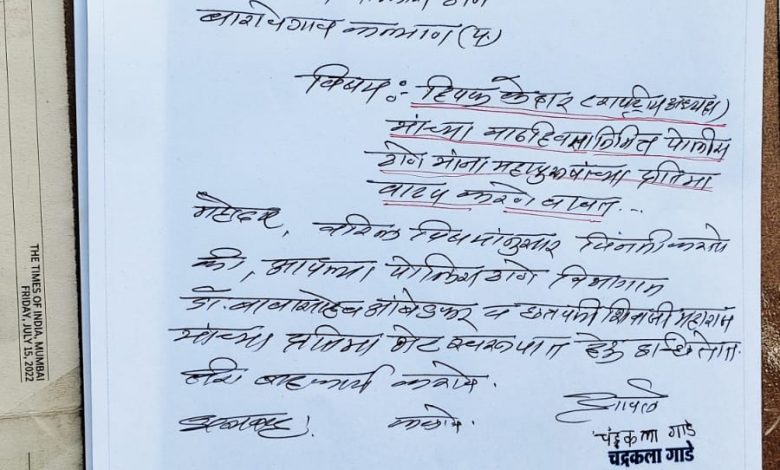 बारावेगाव कल्याण (प)
विषय :- दिपक केदार (राष्ट्रीय अध्यक्ष)
यांच्या वाढदिवसानिमित्त पोलीस
ठाणे यांना महापुरुषांच्या प्रतिमा
वाटप करणे बाबत...
महोदय, वरिल विषयांनुसार विनंती करतो
की, आपल्या पोलिस ठाणे विभागात
डॉ. बाबासाहेब आंबेडकर व छत्रपती शिवाजी महाराज
यांच्या प्रतिमा भेट स्वरूपात देऊ इच्छितोत.
तरी सहकार्य करावे.
धन्यवाद! कळावे.
चंद्रकला गाडे
चंद्रकला गाडे
THE TIMES OF INDIA, MUMBAI
FRIDAY, JULY 15, 2022